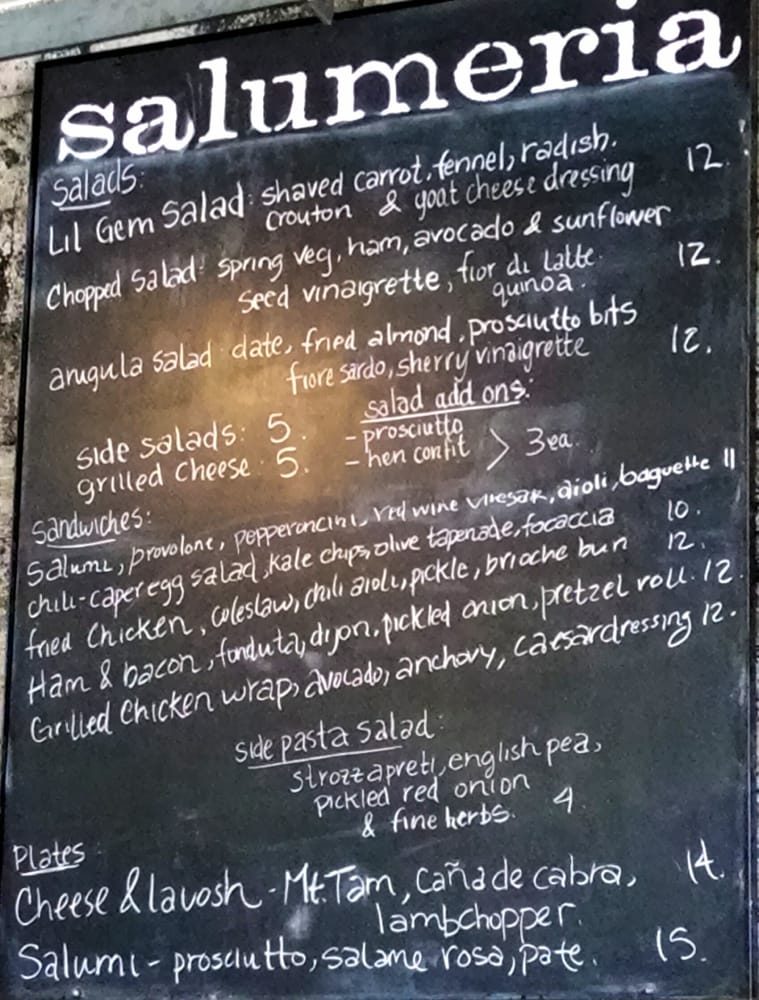 salumeria
Salads:
Lil Gem Salad: shaved carrot, fennel, radish. 12.
crouton & goat cheese dressing
Chopped Salad: spring veg, ham, avocado & sunflower
seed vinaigrette, fior di latte 12.
quinoa.
arugula salad: date, fried almond, prosciutto bits
fiore sardo, sherry vinaigrette 12.
salad add ons:
side salads: 5. - prosciutto
grilled cheese: 5. - hen confit > 3ea.
Sandwiches:
Salumi, provolone, pepperoncini, red wine, aioli, baguette 11
chili-caper egg salad, kale chips, olive tapenade, focaccia 10.
fried Chicken, coleslaw, chili aioli, pickle, brioche bun 12.
Ham & bacon, fonduta, dijon, pickled onion, pretzel roll. 12.
Grilled Chicken wrap, avocado, anchovy, caesar dressing 12.
side pasta salad:
strozzapreti, english pea,
pickled red onion
& fine herbs. 4
Plates
Cheese & lavosh - Mt. Tam, caña de cabra, 14.
lambchopper.
Salumi - prosciutto, salame rosa, pate. 15.